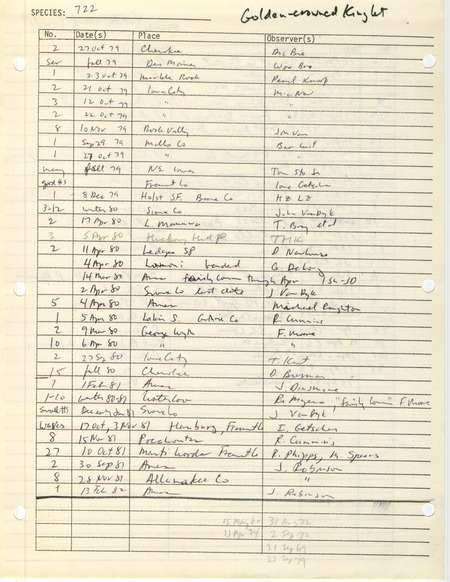 SPECIES: 722 Golden-crowned Kinglet
No. Date(s) Place Observer(s)
2 27 Oct 79 Cherokee Dic Bie
Sev fall 79 Des Moines Woo Bro
1 23 Oct 79 Marble Rock Pearl Knoop
2 21 Oct 79 Iowa City Mic New
3 12 Oct 79 " "
2 22 Oct 79 " "
8 10 Nov 79 Rock Valley Jon Van
1 Sep 29 79 Mills Co
1 27 Oct 79 " "
many fall 79 N.E. Iowa
Fremont Co Ione Getscher
1 8 Dec 79 Holst SF. Boone Co
3-12 winter 80 Sioux Co John VanDyk
2 17 Apr 80 T. Bray et al
3 5 Apr 80 Hickory Hill P THK
2 11 Apr 80 Ledges SP D Newhouse
4 Apr 80 banded G. DeLong
14 Mar 80 Ames fairly common through Apr
2 Apr 80 Sioux Co last date J Van Dyk
5 4 Apr 80 Ames Michael Brighton
1 5 Apr 80 Lakin S. Guthrie Co R. Cummins
2 9 Mar 80 George Wyth F. Moore
10 6 Apr 80 " "
2 27 Sep 80 Iowa City T. Kent
15 fall 80 Cherokee D. Bierman
1 1 Feb 81 Ames J. Dinsmore
1-10 winter 80-81 Waterloo R. Myers "fairly common" F. Moore
Small #s Dec, early Jan 81 Sioux Co J. Van Dyk
17 Oct, 3 Nov 81 Hamburg, Fremont I. Getscher
8 15 Nov 81 Pocahontas R Cummins
27 10 Oct 81 Manti border Fremont R. Phipps, M. Spears
2 30 Sep 81 Ames J. Robinson
8 28 Nov 81 Allamakee Co "
1 13 Feb 82 Ames J. Robinson
15 May 60 31 Aug 72
13 Apr 74 2 Sep 72
21 Sep 69
22 Sep 79